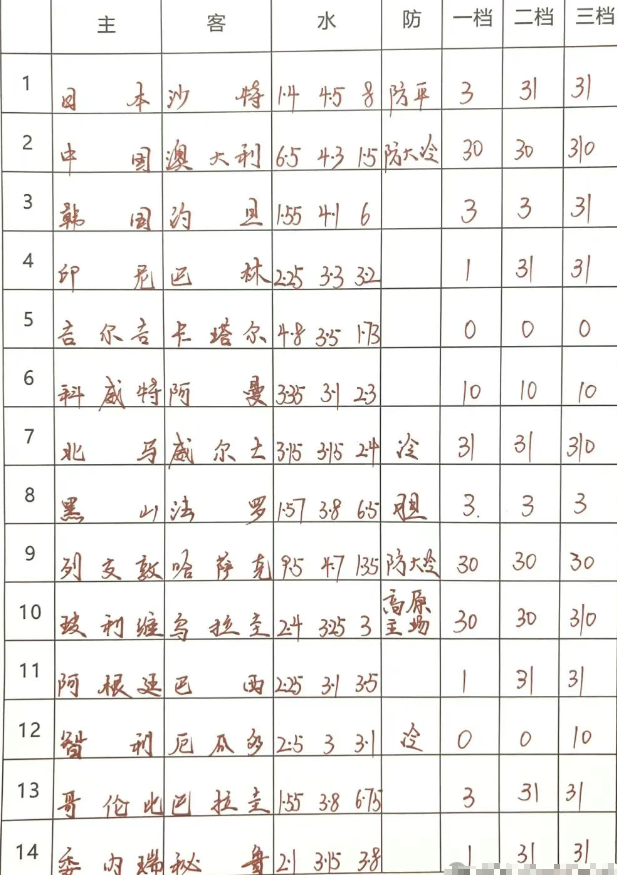 主 客 水 防 一档 二档 三档
1 日本 沙特 1.4 4.5 8 防平 3 31 31
2 中国 澳大利 6.5 4.3 1.5 防大冷 30 30 310
3 韩国 约旦 1.55 4.1 6 3 3 31
4 印尼 巴林 2.25 3.3 3.2 1 31 31
5 吉尔吉 卡塔尔 4.8 3.5 1.73 0 0 0
6 科威特 阿曼 3.35 3.1 2.3 10 10 10
7 北马 威尔士 3.15 3.15 2.4 冷 31 31 310
8 黑山 法罗 1.57 3.8 6.5 胆 3. 3 3
9 列支敦 哈萨克 9.5 4.7 1.35 防大冷 30 30 30
10 玻利维 乌拉圭 2.4 3.25 3 高原主场 30 30 310
11 阿根廷 巴西 2.25 3.1 3.5 1 31 31
12 智利 厄瓜多 2.5 3 3.1 冷 0 0 10
13 哥伦比 巴拉圭 1.55 3.8 6.75 3 31 31
14 委内瑞 秘鲁 2.1 3.15 3.8 1 31 31